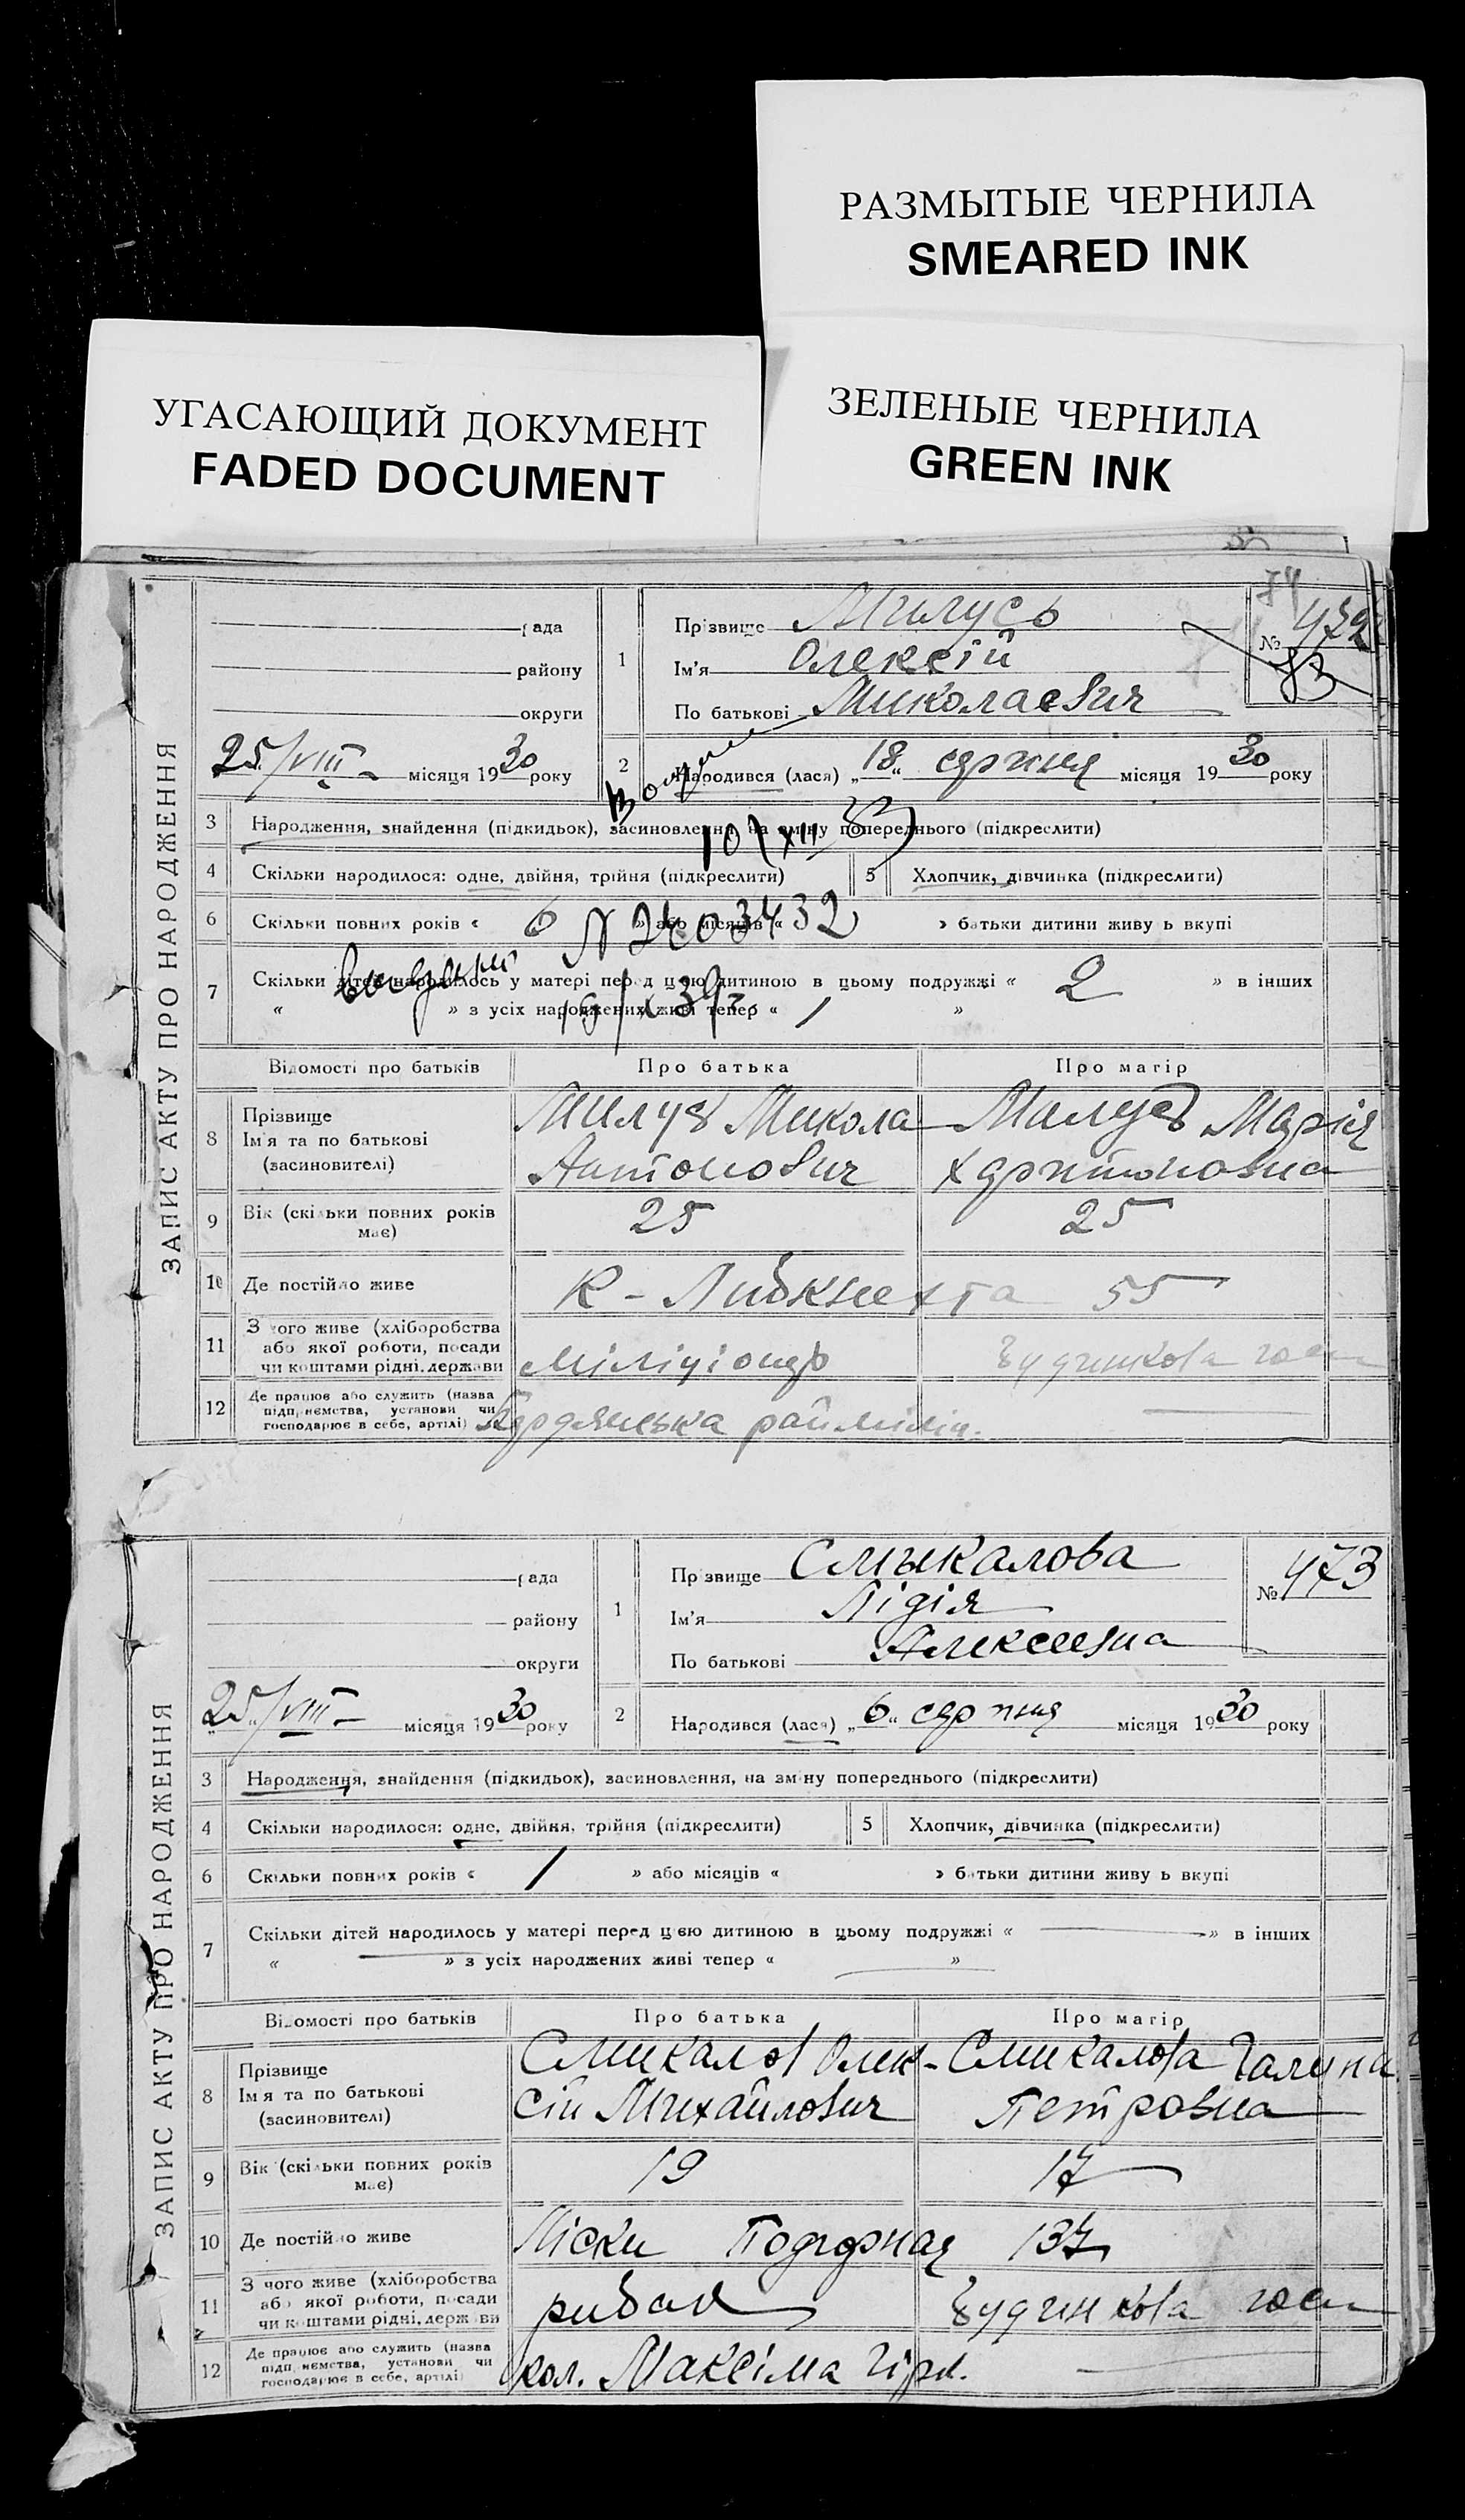 РАЗМЫТЫЕ ЧЕРНИЛА
SMEARED INK
УГАСАЮЩИЙ ДОКУМЕНТ
FADED DOCUMENT
ЗЕЛЕНЫЕ ЧЕРНИЛА
GREEN INK
ЗАПИС АКТУ ПРО НАРОДЖЕННЯ
рада
району
округи
25/VIII- місяця 1930 року
1 Прізвище Милусь
Ім'я Олексій
По батькові Миколаевич
№ 472
2 Народився (лася) „18“ серпня місяця 1930 року
3 Народження, знайдення (підкидьок), засиновлення, на зміну попереднього (підкреслити)
10/XII 53
4 Скільки народилося: одне, двійня, трійня (підкреслити) 5 Хлопчик, дівчинка (підкреслити)
6 Скільки повних років « 6 » або місяців « » батьки дитини живуть вкупі
N 2403432
7 Скільки дітей народилось у матері перед цією дитиною в цьому подружжі « 2 » в інших
« » з усіх народжених живі тепер « 1 »
Відомості про батьків Про батька Про матір
8 Прізвище Ім'я та по батькові (засновителі)
Милусь Микола Антонович
Милусь Марія Харитоновна
9 Вік (скільки повних років має) 25 25
10 Де постійно живе К-Либкнехта 55
11 З чого живе (хліборобства або якої роботи, посади чи коштами рідні, держави
міліціонер Будинкова госп
12 Де працює або служить (назва підприємства, установи чи господарює в себе, артілі)
Бердянська райміліц.
ЗАПИС АКТУ ПРО НАРОДЖЕННЯ
рада
району
округи
25/VIII- місяця 1930 року
1 Прізвище Смыкалова
Ім'я Лідія
По батькові Алексеевна
№ 473
2 Народився (лася) „6“ серпня місяця 1930 року
3 Народження, знайдення (підкидьок), засиновлення, на зміну попереднього (підкреслити)
4 Скільки народилося: одне, двійня, трійня (підкреслити) 5 Хлопчик, дівчинка (підкреслити)
6 Скільки повних років « 1 » або місяців « » батьки дитини живуть вкупі
7 Скільки дітей народилось у матері перед цією дитиною в цьому подружжі « — » в інших
« — » з усіх народжених живі тепер « — »
Відомості про батьків Про батька Про матір
8 Прізвище Ім'я та по батькові (засиновителі)
Смикалов Олексій Михайлович
Смикалова Галина Петровна
9 Вік (скільки повних років має) 19 17
10 Де постійно живе Ліски Подгорная 137
11 З чого живе (хліборобства або якої роботи, посади чи коштами рідні, держави
рибак Будинкова госп
12 Де працює або служить (назва підприємства, установи чи господарює в себе, артілі)
кол. Максіма Гірк.